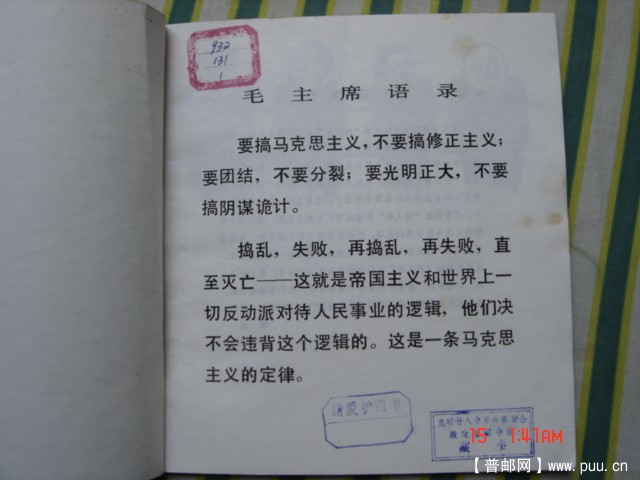 932
131
1
毛主席语录
要搞马克思主义,不要搞修正主义;
要团结,不要分裂;要光明正大,不要
搞阴谋诡计。
捣乱,失败,再捣乱,再失败,直
至灭亡——这就是帝国主义和世界上一
切反动派对待人民事业的逻辑,他们决
不会违背这个逻辑的。这是一条马克思
主义的定律。
请爱护图书
15 1:41AM
【普邮网】www.puu.cn